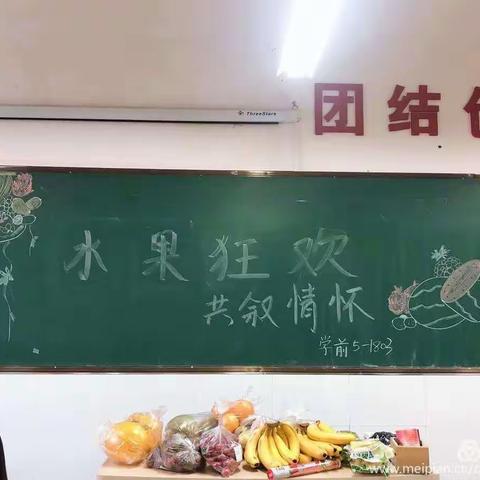 团结
ThreeStars
水果狂欢
共叙情怀
学前5-1803
www.meipian.cn